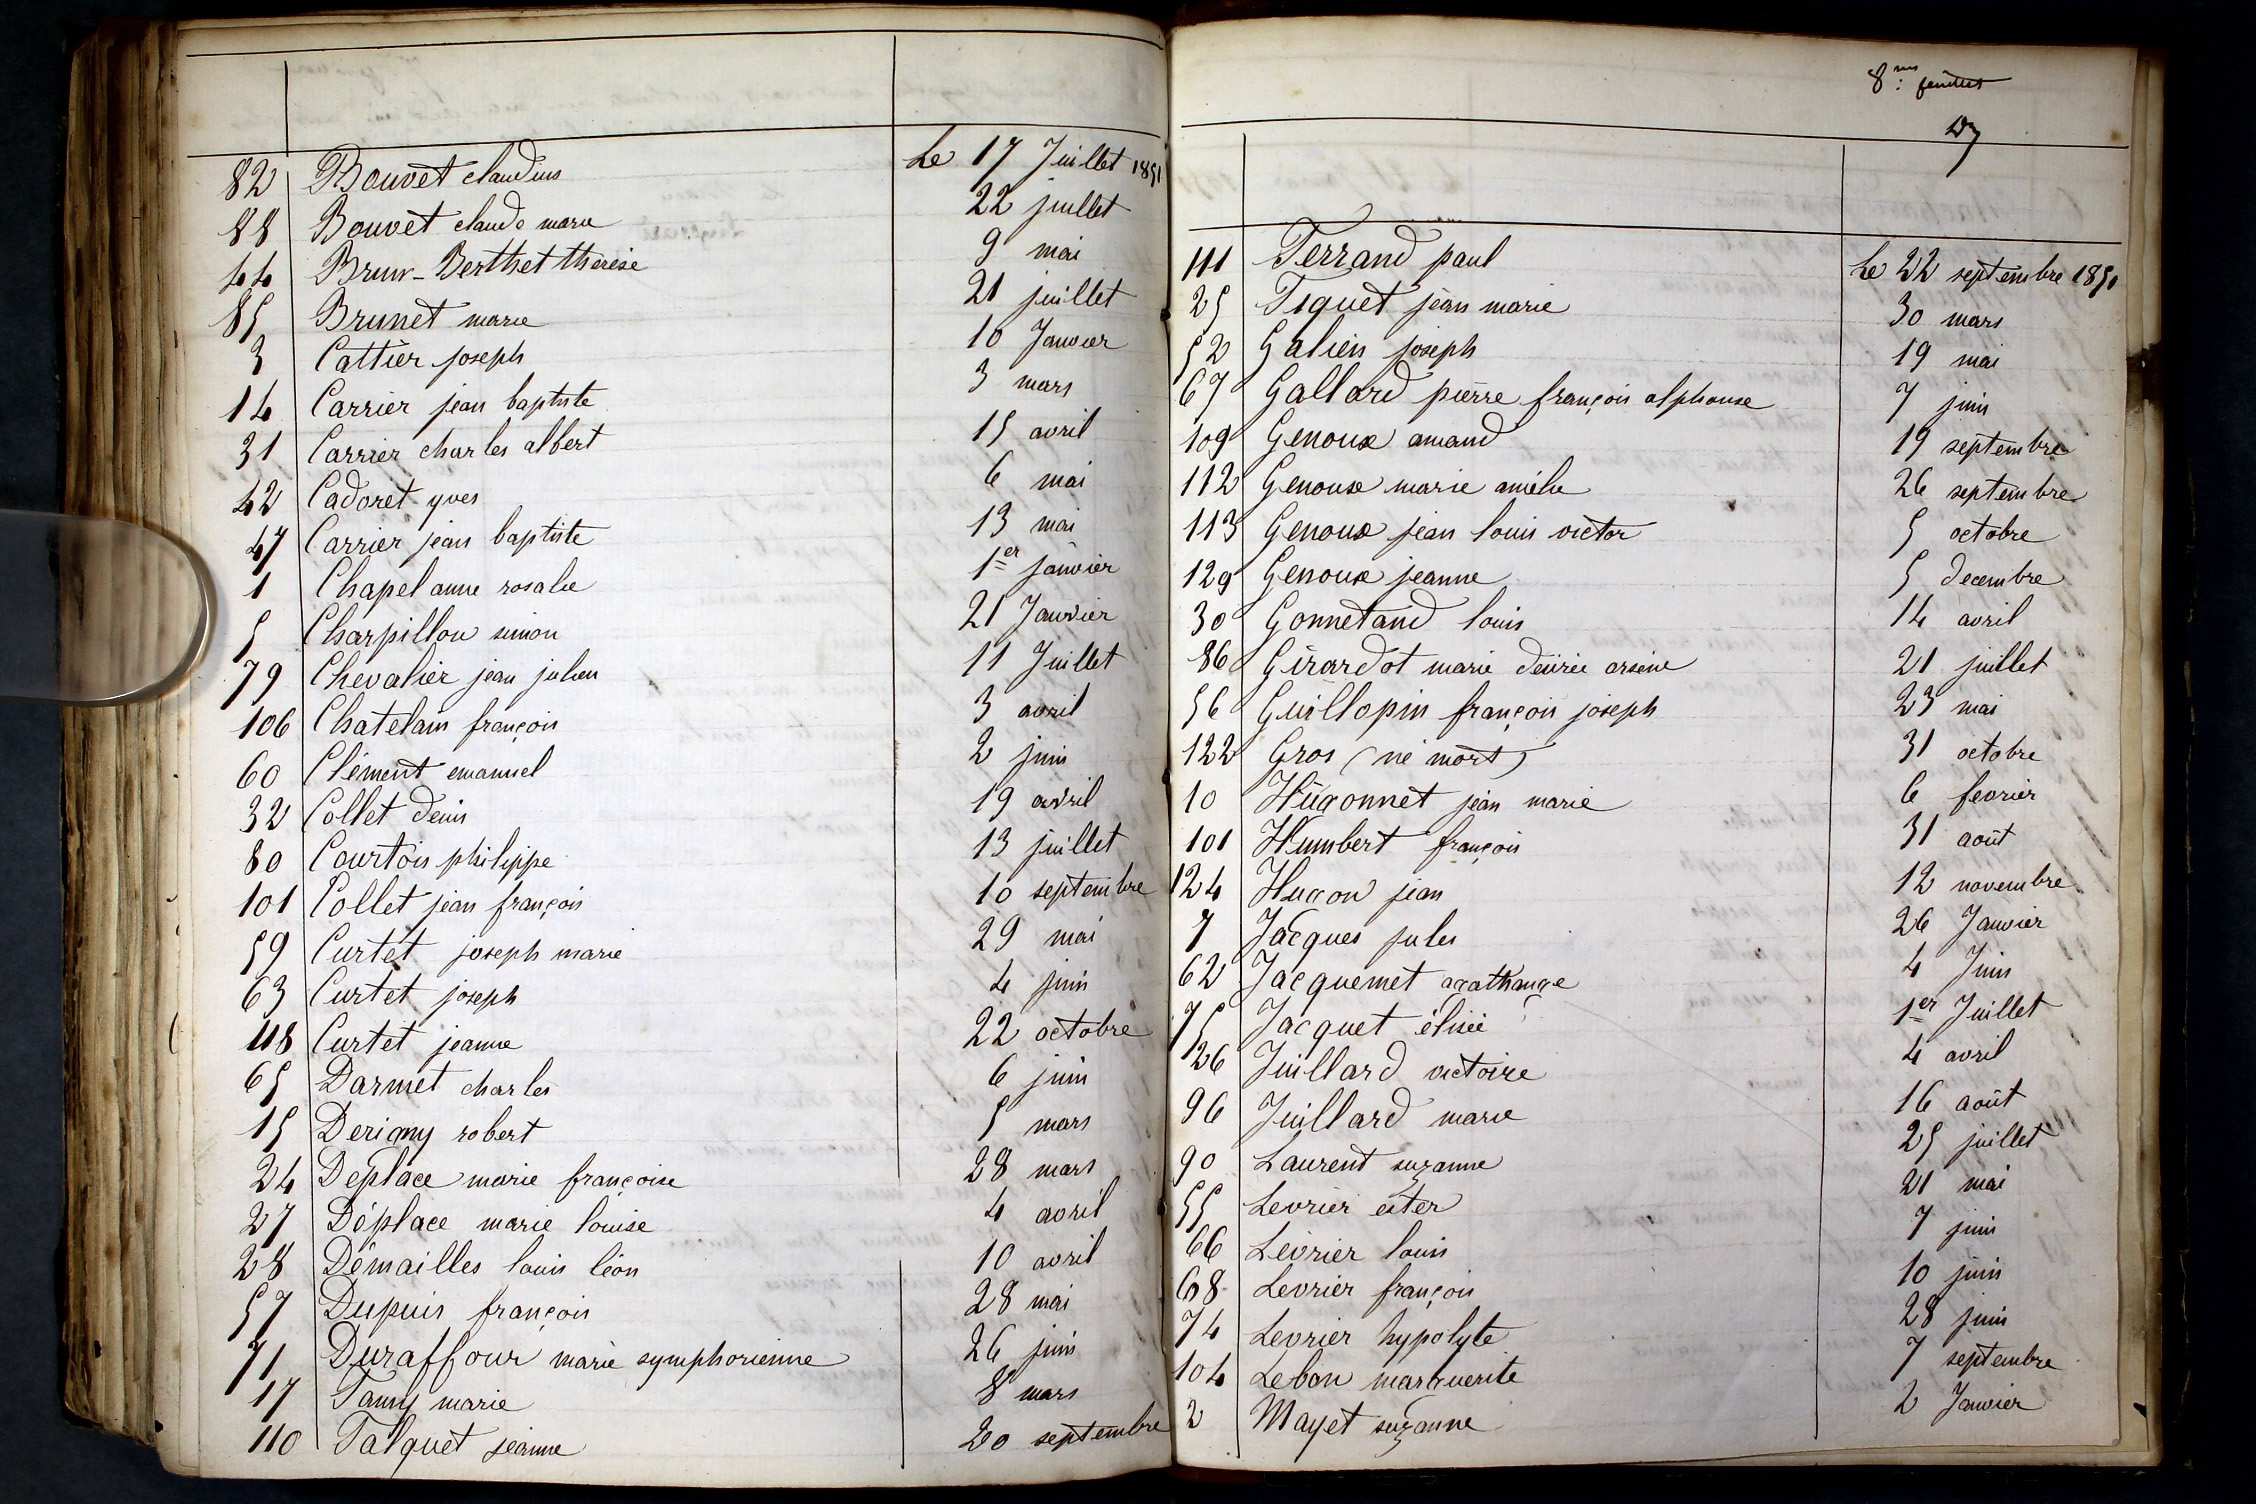 82 Bouvet claudius Le 17 Juillet 1851
88 Bouvet claude marie 22 juillet
44 Brun-Berthet thérèse 9 mai
85 Brunet marie 21 juillet
3 Cattier joseph 10 Janvier
14 Carrier jean baptiste 3 mars
31 Carrier charles albert 15 avril
42 Cadoret yves 6 mai
47 Carrier jean baptiste 13 mai
1 Chapel anne rosalie 1er janvier
5 Charpillon simon 21 Janvier
79 Chevalier jean julien 11 Juillet
106 Chatelain françois 3 avril
60 Clément emanuel 2 juin
32 Collet denis 19 avril
80 Courtois philippe 13 juillet
101 Collet jean françois 10 septembre
59 Curtet joseph marie 29 mai
63 Curtet joseph 4 juin
118 Curtet jeanne 22 octobre
65 Darmet charles 6 juin
15 Derigny robert 5 mars
24 Deplace marie françoise 28 mars
27 Déplace marie louise 4 avril
28 Démailles louis léon 10 avril
57 Dupuis françois 28 mai
71 Duraffour marie symphorienne 26 juin
17 Famy marie 8 mars
110 Falquet jeanne 20 septembre
8me feuillet
111 Ferrand paul Le 22 septembre 1851
25 Fiquet jean marie 30 mars
52 Galien joseph 19 mai
67 Gallard pierre françois alphonse 7 juin
109 Genoux amand 19 septembre
112 Genoux marie amélie 26 septembre
113 Genoux jean louis victor 5 octobre
129 Genoux jeanne 5 decembre
30 Gonnetand louis 14 avril
86 Girardot marie désirée arsène 21 juillet
56 Guillopin françois joseph 23 mai
122 Gros (né mort) 31 octobre
10 Hugonnet jean marie 6 fevrier
101 Humbert françois 31 août
124 Hugon jean 12 novembre
7 Jacques jules 26 Janvier
62 Jacquemet agathange 4 Juin
75 Jacquet élisée 1er Juillet
26 Juillard victoire 4 avril
96 Juillard marie 16 août
90 Laurent suzanne 25 juillet
55 Levrier ester 21 mai
66 Levrier louis 7 juin
68 Levrier françois 10 juin
74 Levrier hypolyte 28 juin
104 Lebon marguerite 7 septembre
2 Mayet suzanne 2 Janvier